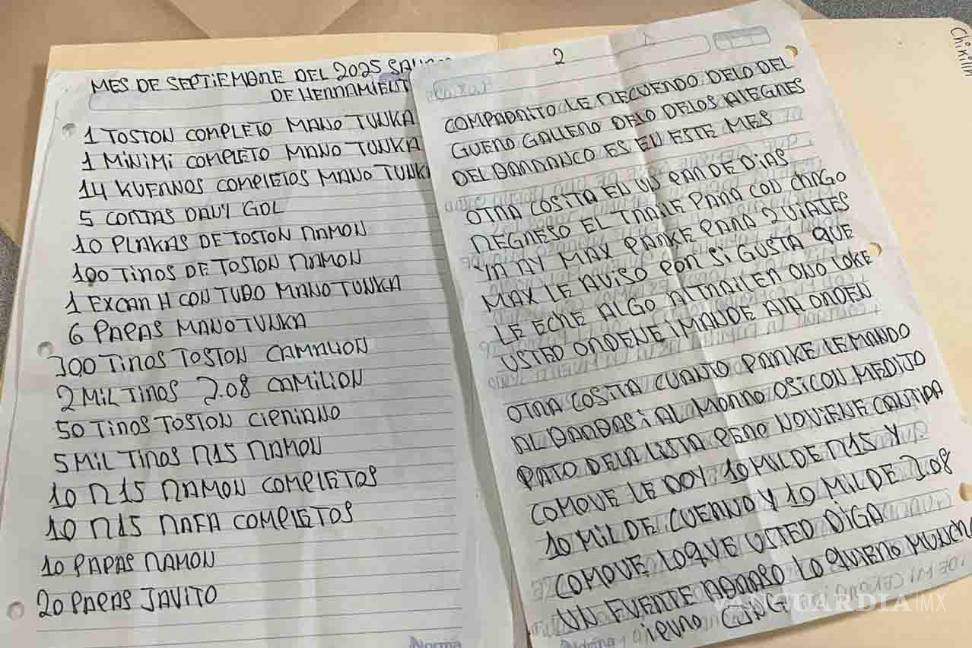 MES DE SEPTIEMBRE DEL 2025
DE HERRAMIENT
1 TOSTON COMPLETO MANO TUNKA
1 MINIMI COMPLETO MANO TUNKA
14 KUERNOS COMPLETOS MANO TUNK
5 CORTAS DAVI GOL
10 PLAKAS DE TOSTON RAMON
100 TIROS DE TOSTON RAMON
1 EXCAR H CON TUBO MANO TUNKA
6 PAPAS MANO TUNKA
300 TIROS TOSTON CAMALION
2 MIL TIROS 2.08 CAMILION
50 TIROS TOSTON CIPRIANO
5 MIL TIROS R15 RAMON
10 R15 RAMON COMPLETOS
10 R15 RAFA COMPLETOS
10 PAPAS RAMON
20 PAPAS JAVITO
Norma
2
COMPADRITO LE RECUERDO DELO DEL
GUERO GALLERO DELO DELOS ALEGRES
DEL BARRANCO ES EN ESTE MES
OTRA COSITA EN UN PAR DE DIAS
REGRESO EL TRAILE PARA CON CHAGO
MAX PARKE PARA 2 VIAJES
MAX LE AVISO POR SI GUSTA QUE
LE ECHE ALGO AL TRAILE OR OTRO LOKE
USTED ORDENE I MANDE ALA ORDEN
OTRA COSITA CUANTO PARKE LE MANDO
AL BARBAS I AL MORRO OSICON MEDIJO
PATO DELA LISTA PERO NO VIENE CANTIDA
COMOVE LE DOY 10 MIL DE R15 Y
10 MIL DE CUERNO Y 10 MIL DE 2.08
COMOVE LOQUE USTED DIGA
UN FUERTE ABRASO LO QUIERO MUNCH
Norma
Chikilin
VANGUARDIA MX